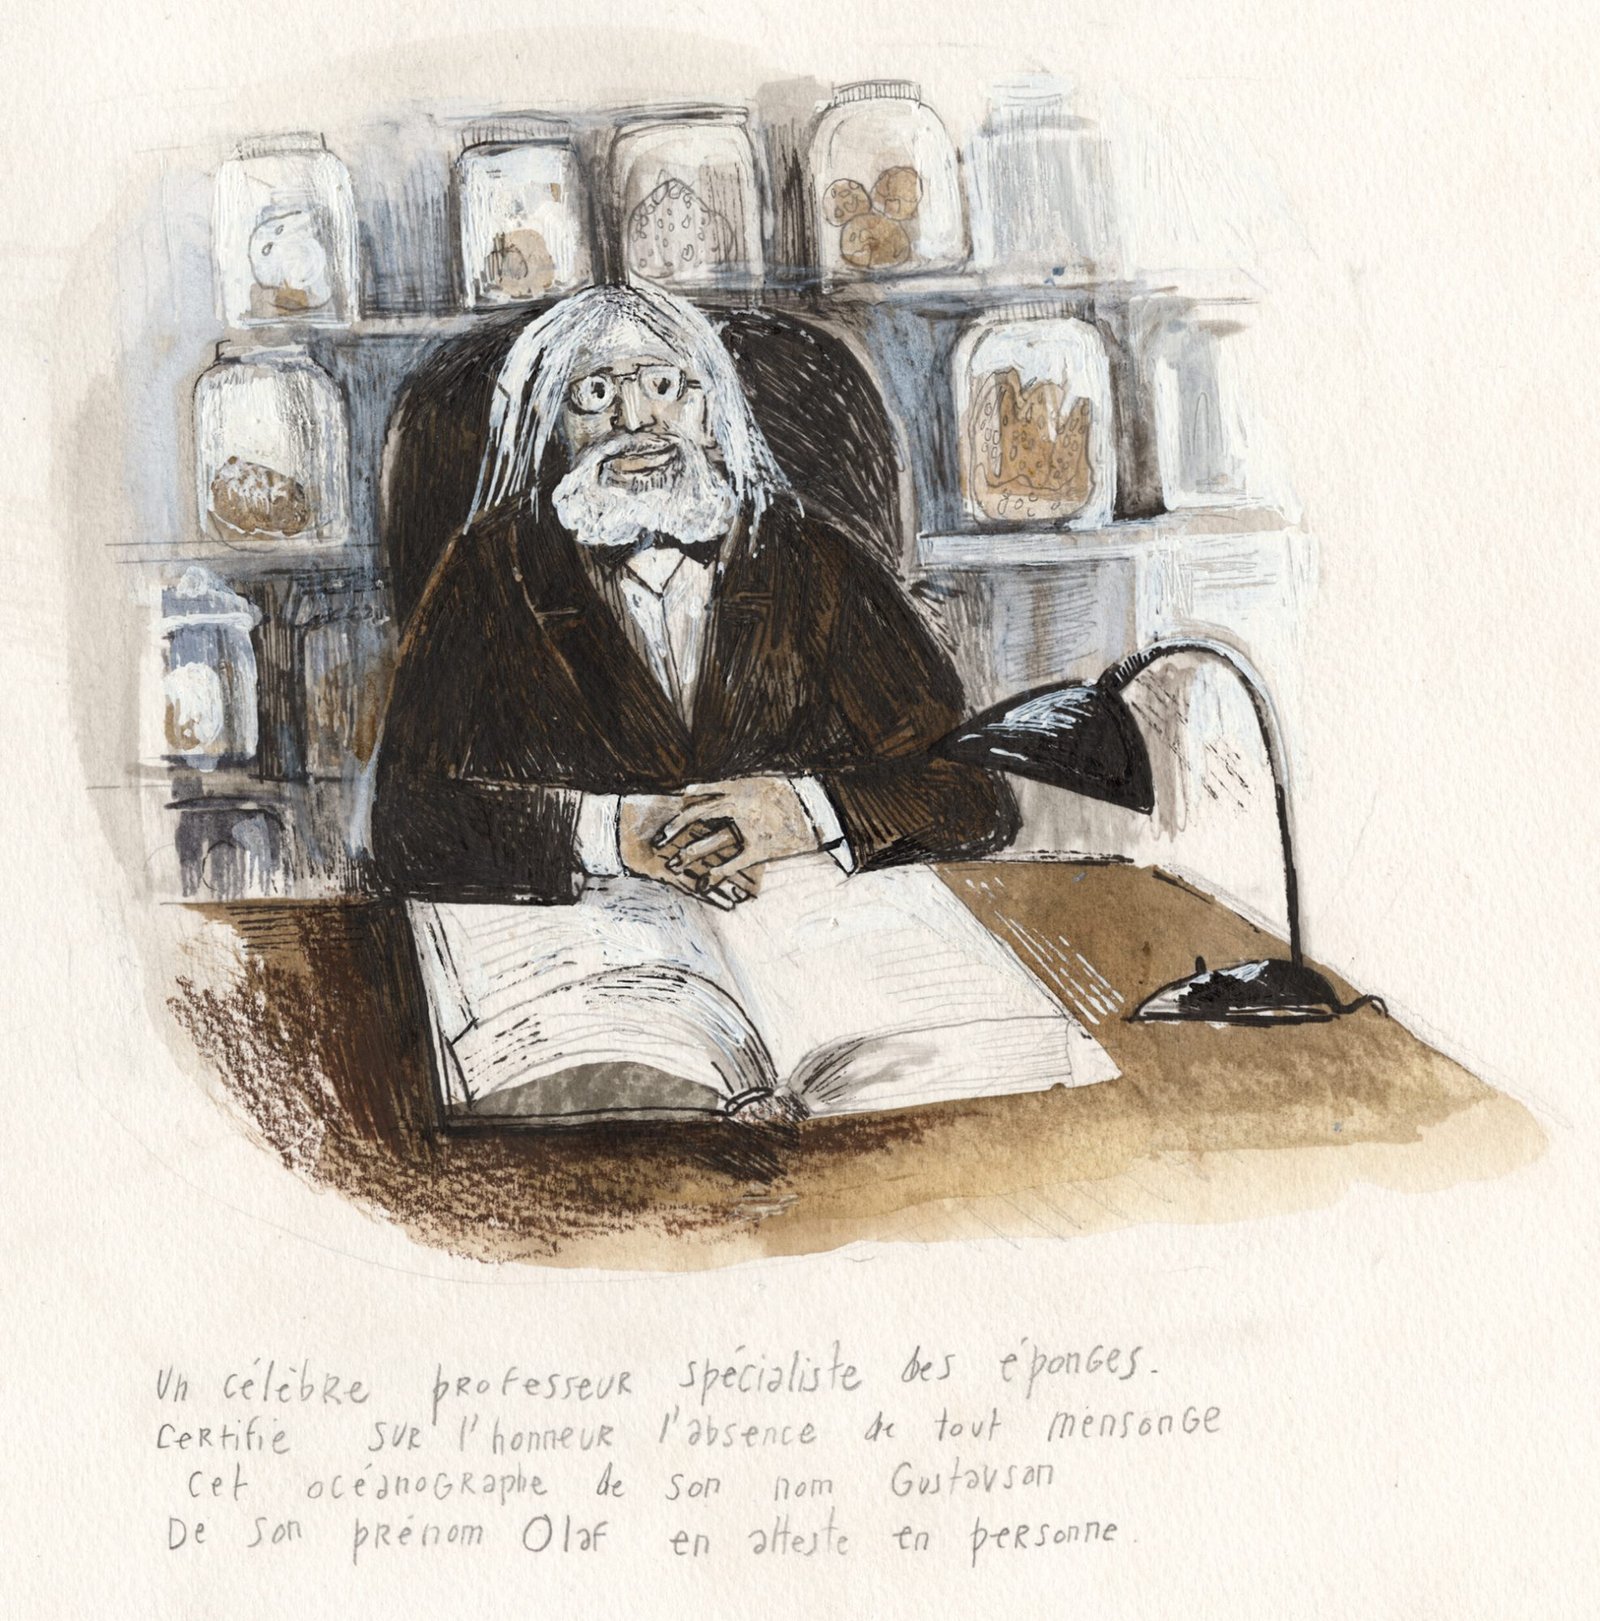 Un célèbre professeur spécialiste des éponges.
Certifie sur l'honneur l'absence de tout mensonge
Cet océanographe de son nom Gustavson
De son prénom Olaf en atteste en personne.